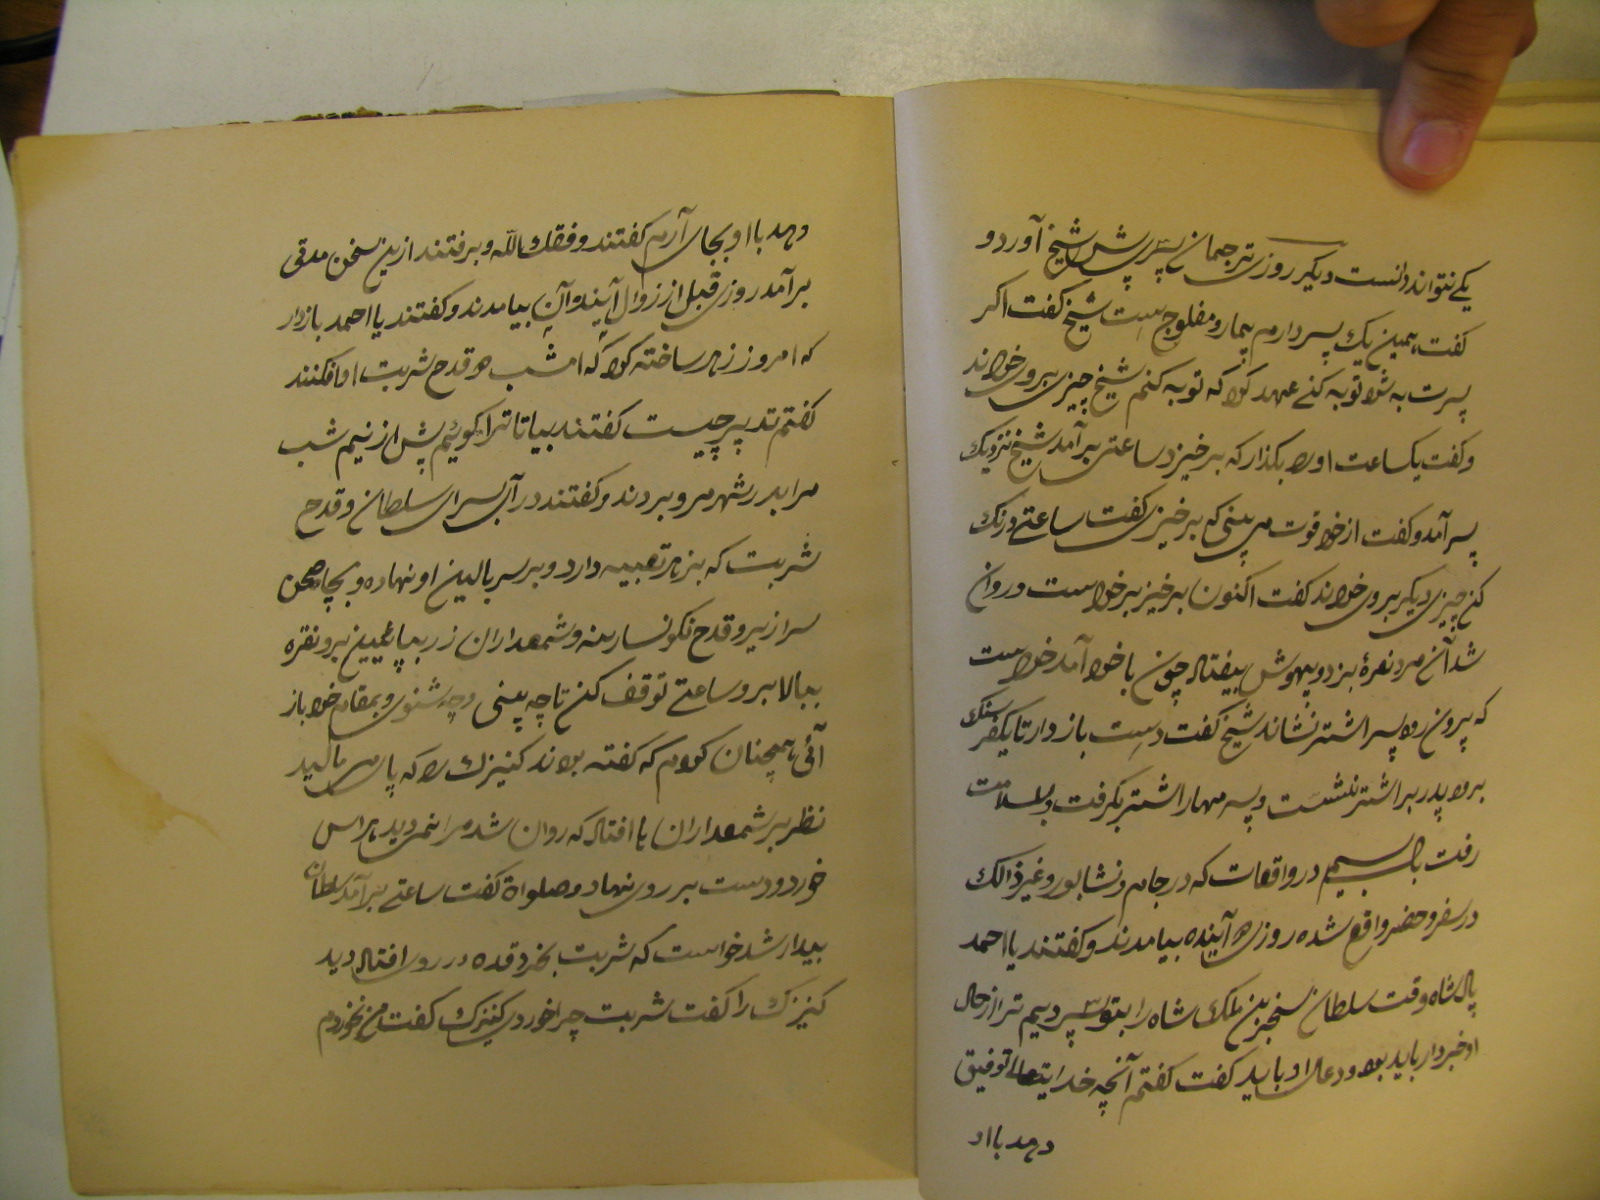 یکی نتواند دانست دیگر روزی ترجمان پسری پیش شیخ آورد و
گفت همین یک پسر دارم بیمار و مفلوج است شیخ گفت اگر
پسرت به شود توبه کنی عهد کرد که توبه کنم شیخ چیزی بروی خواند
و گفت یکساعت او را بگذار که برخیزد ساعتی برآمد شیخ نزدیک
پسر آمد و گفت از خود قوت می بینی که برخیزی گفت ساعتی درنگ
کن چیزی دیگر بروی خواند گفت اکنون برخیز برخواست و روان
شد آن مرد نعرهٔ بزد و بیهوش بیفتاد چون با خود آمد خواست
که بیرون رود پسر را شتر نشاند شیخ گفت دست باز دار تا یکفرسنگ
برود پدر بر اشتر نشست و پسر مهار اشتر بگرفت و بسلامت
رفت باب سیم در واقعات که در جام و نشابور و غیر ذالک
در سفر و حضر واقع شده روزی دو آینده بیامدند و گفتند یا احمد
پادشاه وقت سلطان سنجر بن ملک شاه را بتو سپردیم ترا از حال
او خبردار باید بود و دعای او باید گفت گفتم آنچه خدایتعالی توفیق
دهد با او
دهد با او بجای آرم گفتند وفقک الله و برفتند ازین سخن مدتی
برآمد روزی قبل از زوال آیندو آن بیامدند و گفتند یا احمد بازدار
که امروز زهر ساخته کرد که امشب در قدح شربت او افکنند
گفتم تدبیر چیست گفتند بیا تا ترا گوئیم پس از نیم شب
مرا بدر شهر مرو بردند و گفتند در آی بسرای سلطان و قدح
شربت که بزهر تعبیه دارد و بر سر بالین او نهاده و بجامه صحن
سرا زیر و قدح نگونسار بنه و شمعداران زر بپایین بر و نقره
ببالا بر و ساعتی توقف کن تا چه بینی و چه شنوی و بمقام خود باز
آئی همچنان کردم که گفته بودند کنیزک را که پای می مالید
نظر بر شمعداران با افتاد که روان شد مرا نمی دید هراس
خورد و دست بر روی نهاد و صلواة گفت ساعتی برآمد سلطان
بیدار شد خواست که شربت بخرد قده در روی افتاد دید
کنیزک را گفت شربت چرا خوردی کنیزک گفت من نخوردم